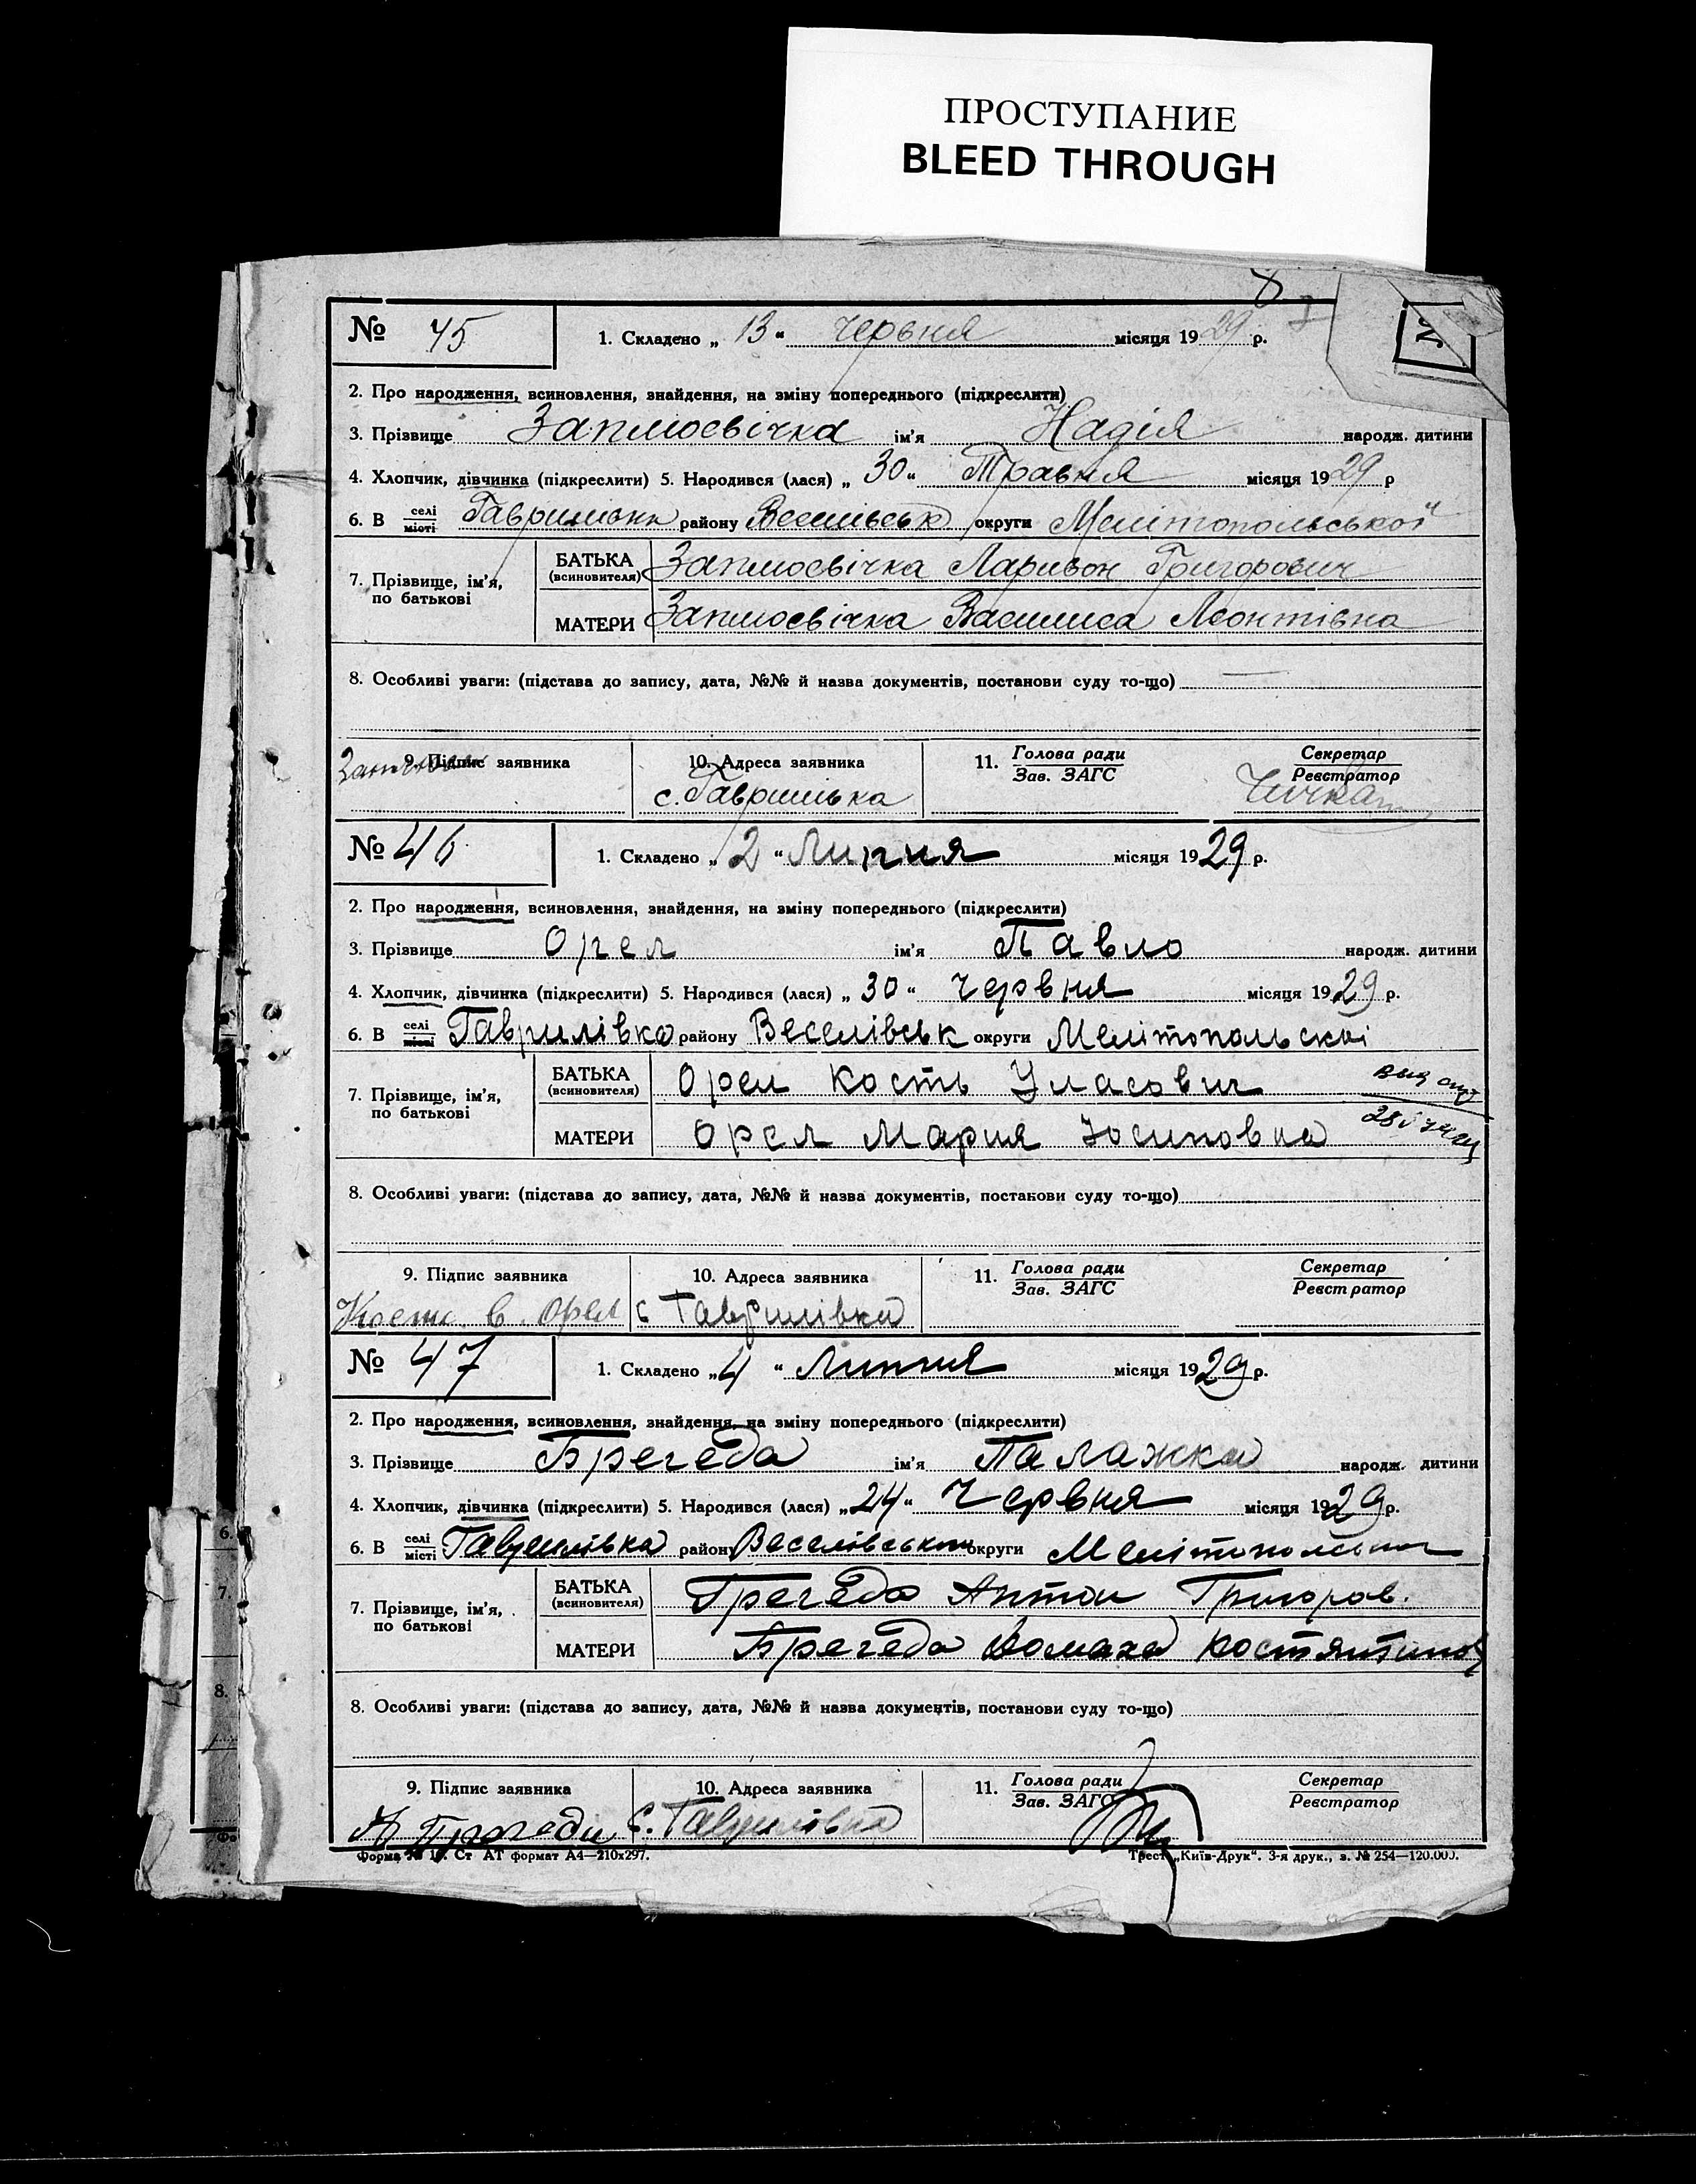 ПРОСТУПАНИЕ
BLEED THROUGH
8
№ 45
1. Складено „ 13 “ червня місяця 1929 р.
№
2. Про народження, всиновлення, знайдення, на зміну попереднього (підкреслити)
3. Прізвище Запмосвічка ім'я Надія народж. дитини
4. Хлопчик, дівчинка (підкреслити) 5. Народився (лася) „ 30 “ Травня місяця 1929 р
6. В селі/місті Гаврилівка району Веселівськ округи Мелітопольської
7. Прізвище, ім'я, по батькові
БАТЬКА (всиновителя) Запмосвічка Ларивон Григорович
МАТЕРИ Запмосвічка Василиса Леонтівна
8. Особливі уваги: (підстава до запису, дата, №№ й назва документів, постанови суду то-що) —
9. Підпис заявника
10. Адреса заявника
11. Голова ради / Зав. ЗАГС
Секретар / Реєстратор
с. Гаврилівка
№ 46
1. Складено „ 2 “ Липня місяця 1929 р.
2. Про народження, всиновлення, знайдення, на зміну попереднього (підкреслити)
3. Прізвище Орел ім'я Павло народж. дитини
4. Хлопчик, дівчинка (підкреслити) 5. Народився (лася) „ 30 “ Червня місяця 1929 р.
6. В селі/місті Гаврилівка району Веселівськ округи Мелітопольскої
7. Прізвище, ім'я, по батькові
БАТЬКА (всиновителя) Орел Кость Уласович
МАТЕРИ Орел Мария Йосиповна
8. Особливі уваги: (підстава до запису, дата, №№ й назва документів, постанови суду то-що)
9. Підпис заявника
10. Адреса заявника
11. Голова ради / Зав. ЗАГС
Секретар / Реєстратор
Кость В. Орел
с Гаврилівка
№ 47
1. Складено „ 4 “ Липня місяця 1929 р.
2. Про народження, всиновлення, знайдення, на зміну попереднього (підкреслити)
3. Прізвище Брегеда ім'я Палажка народж. дитини
4. Хлопчик, дівчинка (підкреслити) 5. Народився (лася) „ 24 “ Червня місяця 1929 р.
6. В селі/місті Гаврилівка району Веселівського округи
7. Прізвище, ім'я, по батькові
БАТЬКА (всиновителя) Брегеда Антон Григоров.
МАТЕРИ Брегеда Домаха Костянтинов
8. Особливі уваги: (підстава до запису, дата, №№ й назва документів, постанови суду то-що)
9. Підпис заявника
10. Адреса заявника
11. Голова ради / Зав. ЗАГС
Секретар / Реєстратор
с. Гаврилівка
Форма № 1. Ст АТ формат А4—210х297.
Трест „Київ-Друк“. 3-я друк., з. № 254—120.000.
6.
7.
8.